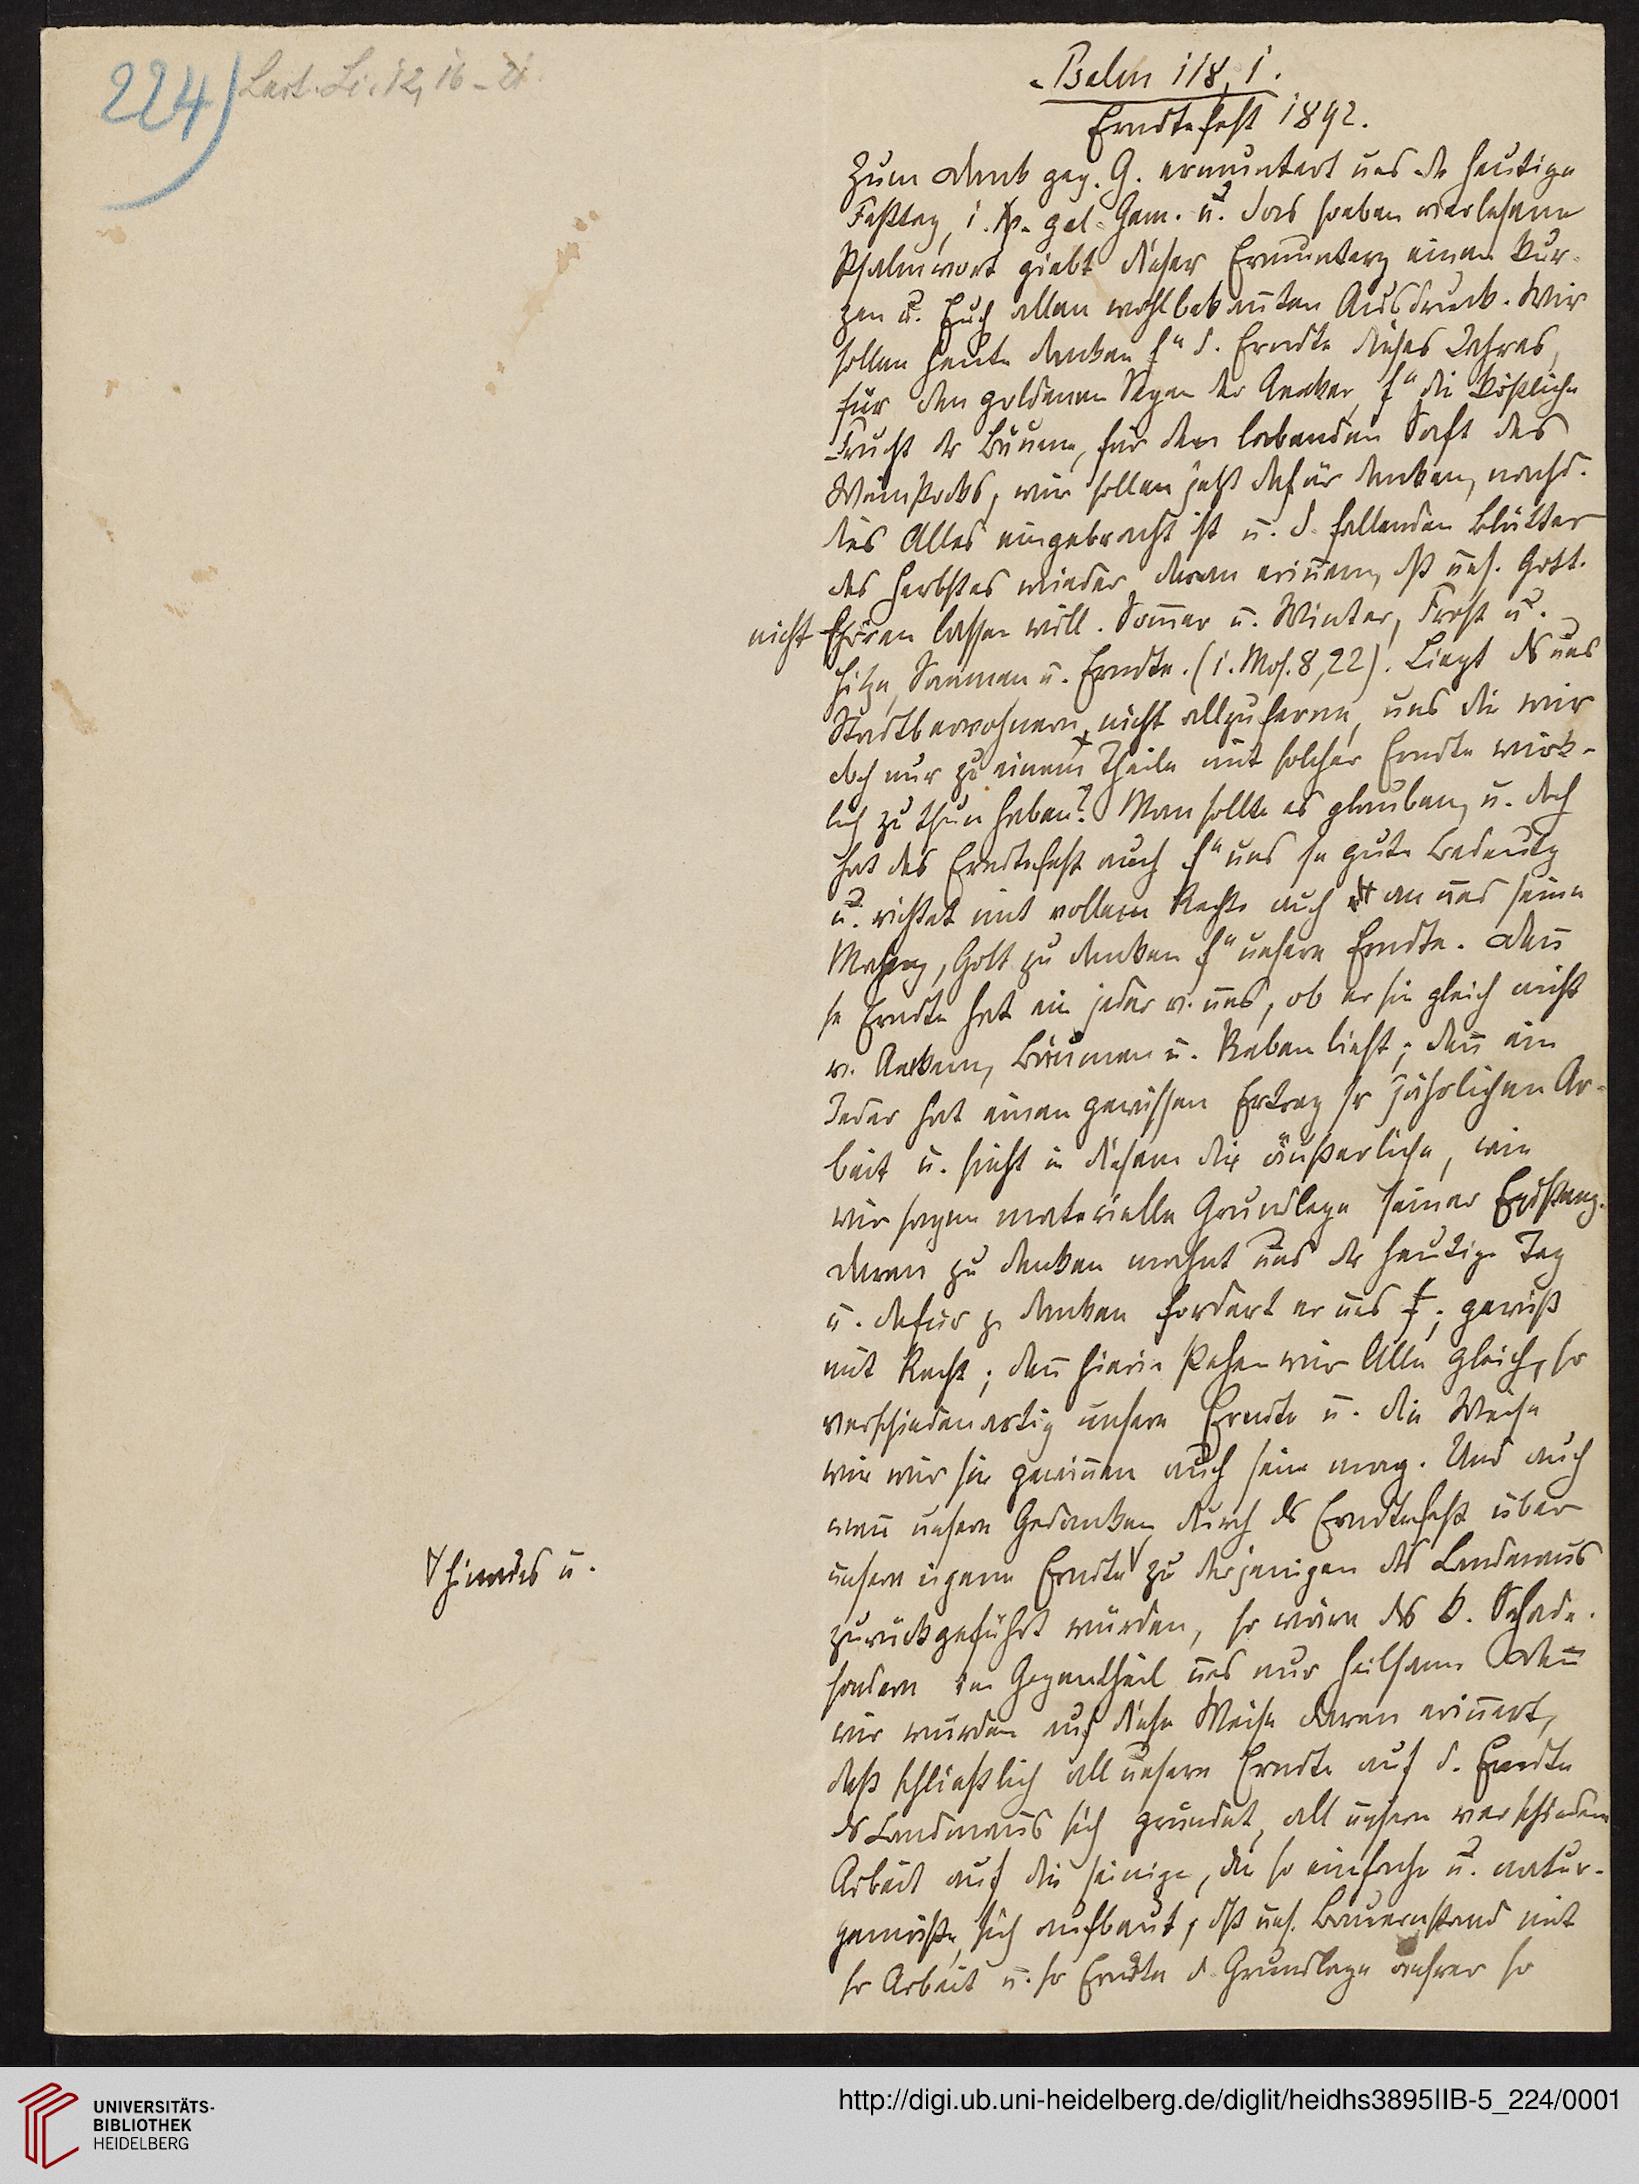 224) Lect. Lc. 12, 16-21.
Psalm 118, 1.
Erndtefest 1892.
Zum Dank geg. G. ermuntert uns der heutige
Festtag, i. gel. Gem. u. das soeben verlesene
Psalmwort giebt dieser Ermunterg einen kur-
zen u. Euch allen wohlbekannten Ausdruck. Wir
sollen heute danken f" d. Erndte dieses Jahres,
für den goldenen Segen der Aecker, f" die köstliche
Frucht der Bäume, für den labenden Saft des
Weinstocks, wir sollen jetzt dafür danken, nachd.
dies Alles eingebracht ist u. d. fallenden Blätter
des Herbstes wieder daran erinnern, dß uns. Gott.
nicht hören lassen will. Sommer u. Winter, Frost u.
Hitze, Saamen u. Erndte. (1. Mos. 8, 22). Liegt ds uns
Stadtbewohnern nicht allzuferne, uns die wir
doch nur zu einem Theile mit solcher Erndte wirk-
lich zu thun haben? Man sollte es glauben, u. doch
hat das Erndtefest auch f" uns se gute Bedeutg
u. richtet mit vollem Rechte auch an uns seine
Mahng, Gott zu danken f" unsere Erndte. Denn
se Erndte hat ein jeder v. uns, ob er sie gleich nicht
v. Aeckern, Bäumen u. Reben liest; denn ein
Jeder hat einen gewissen Ertrag sr jährlichen Ar-
beit u. sieht in diesem die äußerliche, wie
wir sagen materielle Grundlage seiner Existenz.
daran zu denken mahnt uns der heutige Tag
u. dafür z. danken fordert er uns f; gewiß
mit Recht; denn hierin stehen wir Alle gleich, so
verschiedenartig unsere Erndte u. die Weise
wie wir sie gewinnen auch sein mag. Und auch
wenn unsere Gedanken durch ds Erndtefest über
unsere eigene Erndte zu derjenigen des Landmanns
hinaus u.
zurückgeführt würden, so wäre ds k. Schade.
sondern im Gegentheil uns nur heilsam. Denn
wir würden auf diese Weise daran erinnert,
daß schließlich all unsere Erndte auf d. Erndte
ds Landmanns sich gründet, all unsere verschiedene
Arbeit auf die seinige, die so einfache u. natur-
gemäße, sich aufbaut, dß uns. Bauernstand mit
sr Arbeit u. sr Erndte d. Grundlage unserer so
UNIVERSITÄTS-
BIBLIOTHEK
HEIDELBERG
http://digi.ub.uni-heidelberg.de/diglit/heidhs3895IIB-5_224/0001